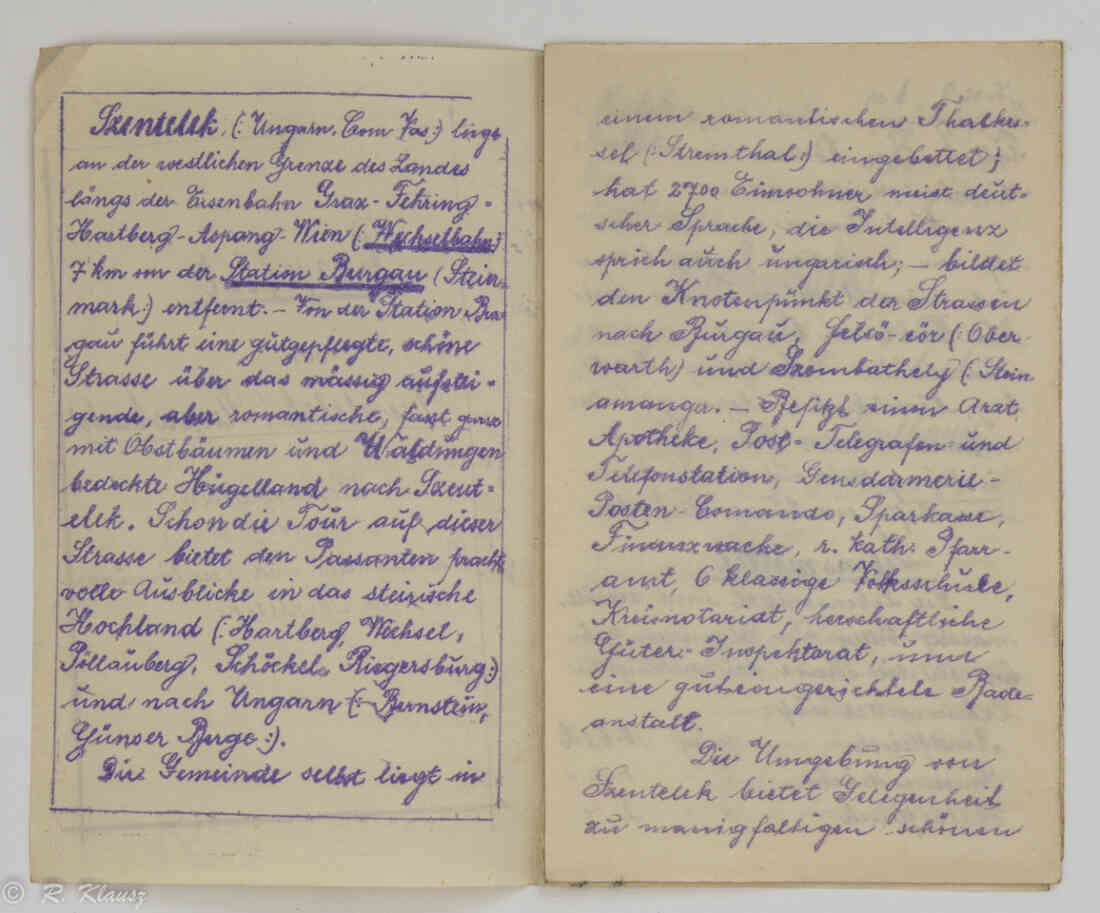 Szentelek, (: Ungarn, Com Vas:) liegt
an der westlichen Grenze des Landes
längs der Eisenbahn Graz-Fehring-
Hartberg-Aspang-Wien (Wechselbahn)
7 km von der Station Burgau (Steier-
mark:) entfernt. — Von der Station Bur-
gau führt eine gutgepflegte, schöne
Strasse über das mässig aufstei-
gende, aber romantische, fasst ganz
mit Obstbäumen und Waldungen
bedeckte Hügelland nach Szent-
elek. Schon die Tour auf dieser
Strasse bietet den Passanten pracht-
volle Ausblicke in das steirische
Hochland (: Hartberg, Wechsel,
Pöllauberg, Schöckel, Riegersburg:)
und nach Ungarn (: Bernstein,
Günser Berge:).
Die Gemeinde selbst liegt in
einem romantischen Thalkes-
sel (: Stremthal:) eingebettet;
hat 2700 Einwohner meist deut-
scher Sprache, die Intelligenz
sprich auch ungarisch; — bildet
den Knotenpunkt der Strassen
nach Burgau, Felsö-eör (: Ober-
warth) und Szombathely (: Stein
amanga. — Besitzt einen Arzt
Apotheke, Post- Telegrafen- und
Telefonstation, Gensdarmerie-
Posten-Comando, Sparkasse,
Finanzwache, r. kath. Pfarr-
amt 6 klassige Volksschule,
Kreisnotariat, herschaftliche
Güter-Inspektorat, und
eine guteingerichtete Bade-
anstalt.
Die Umgebung von
Szentelek bietet Gelegenheit
zu manigfaltigen schönen
© R. Klausz